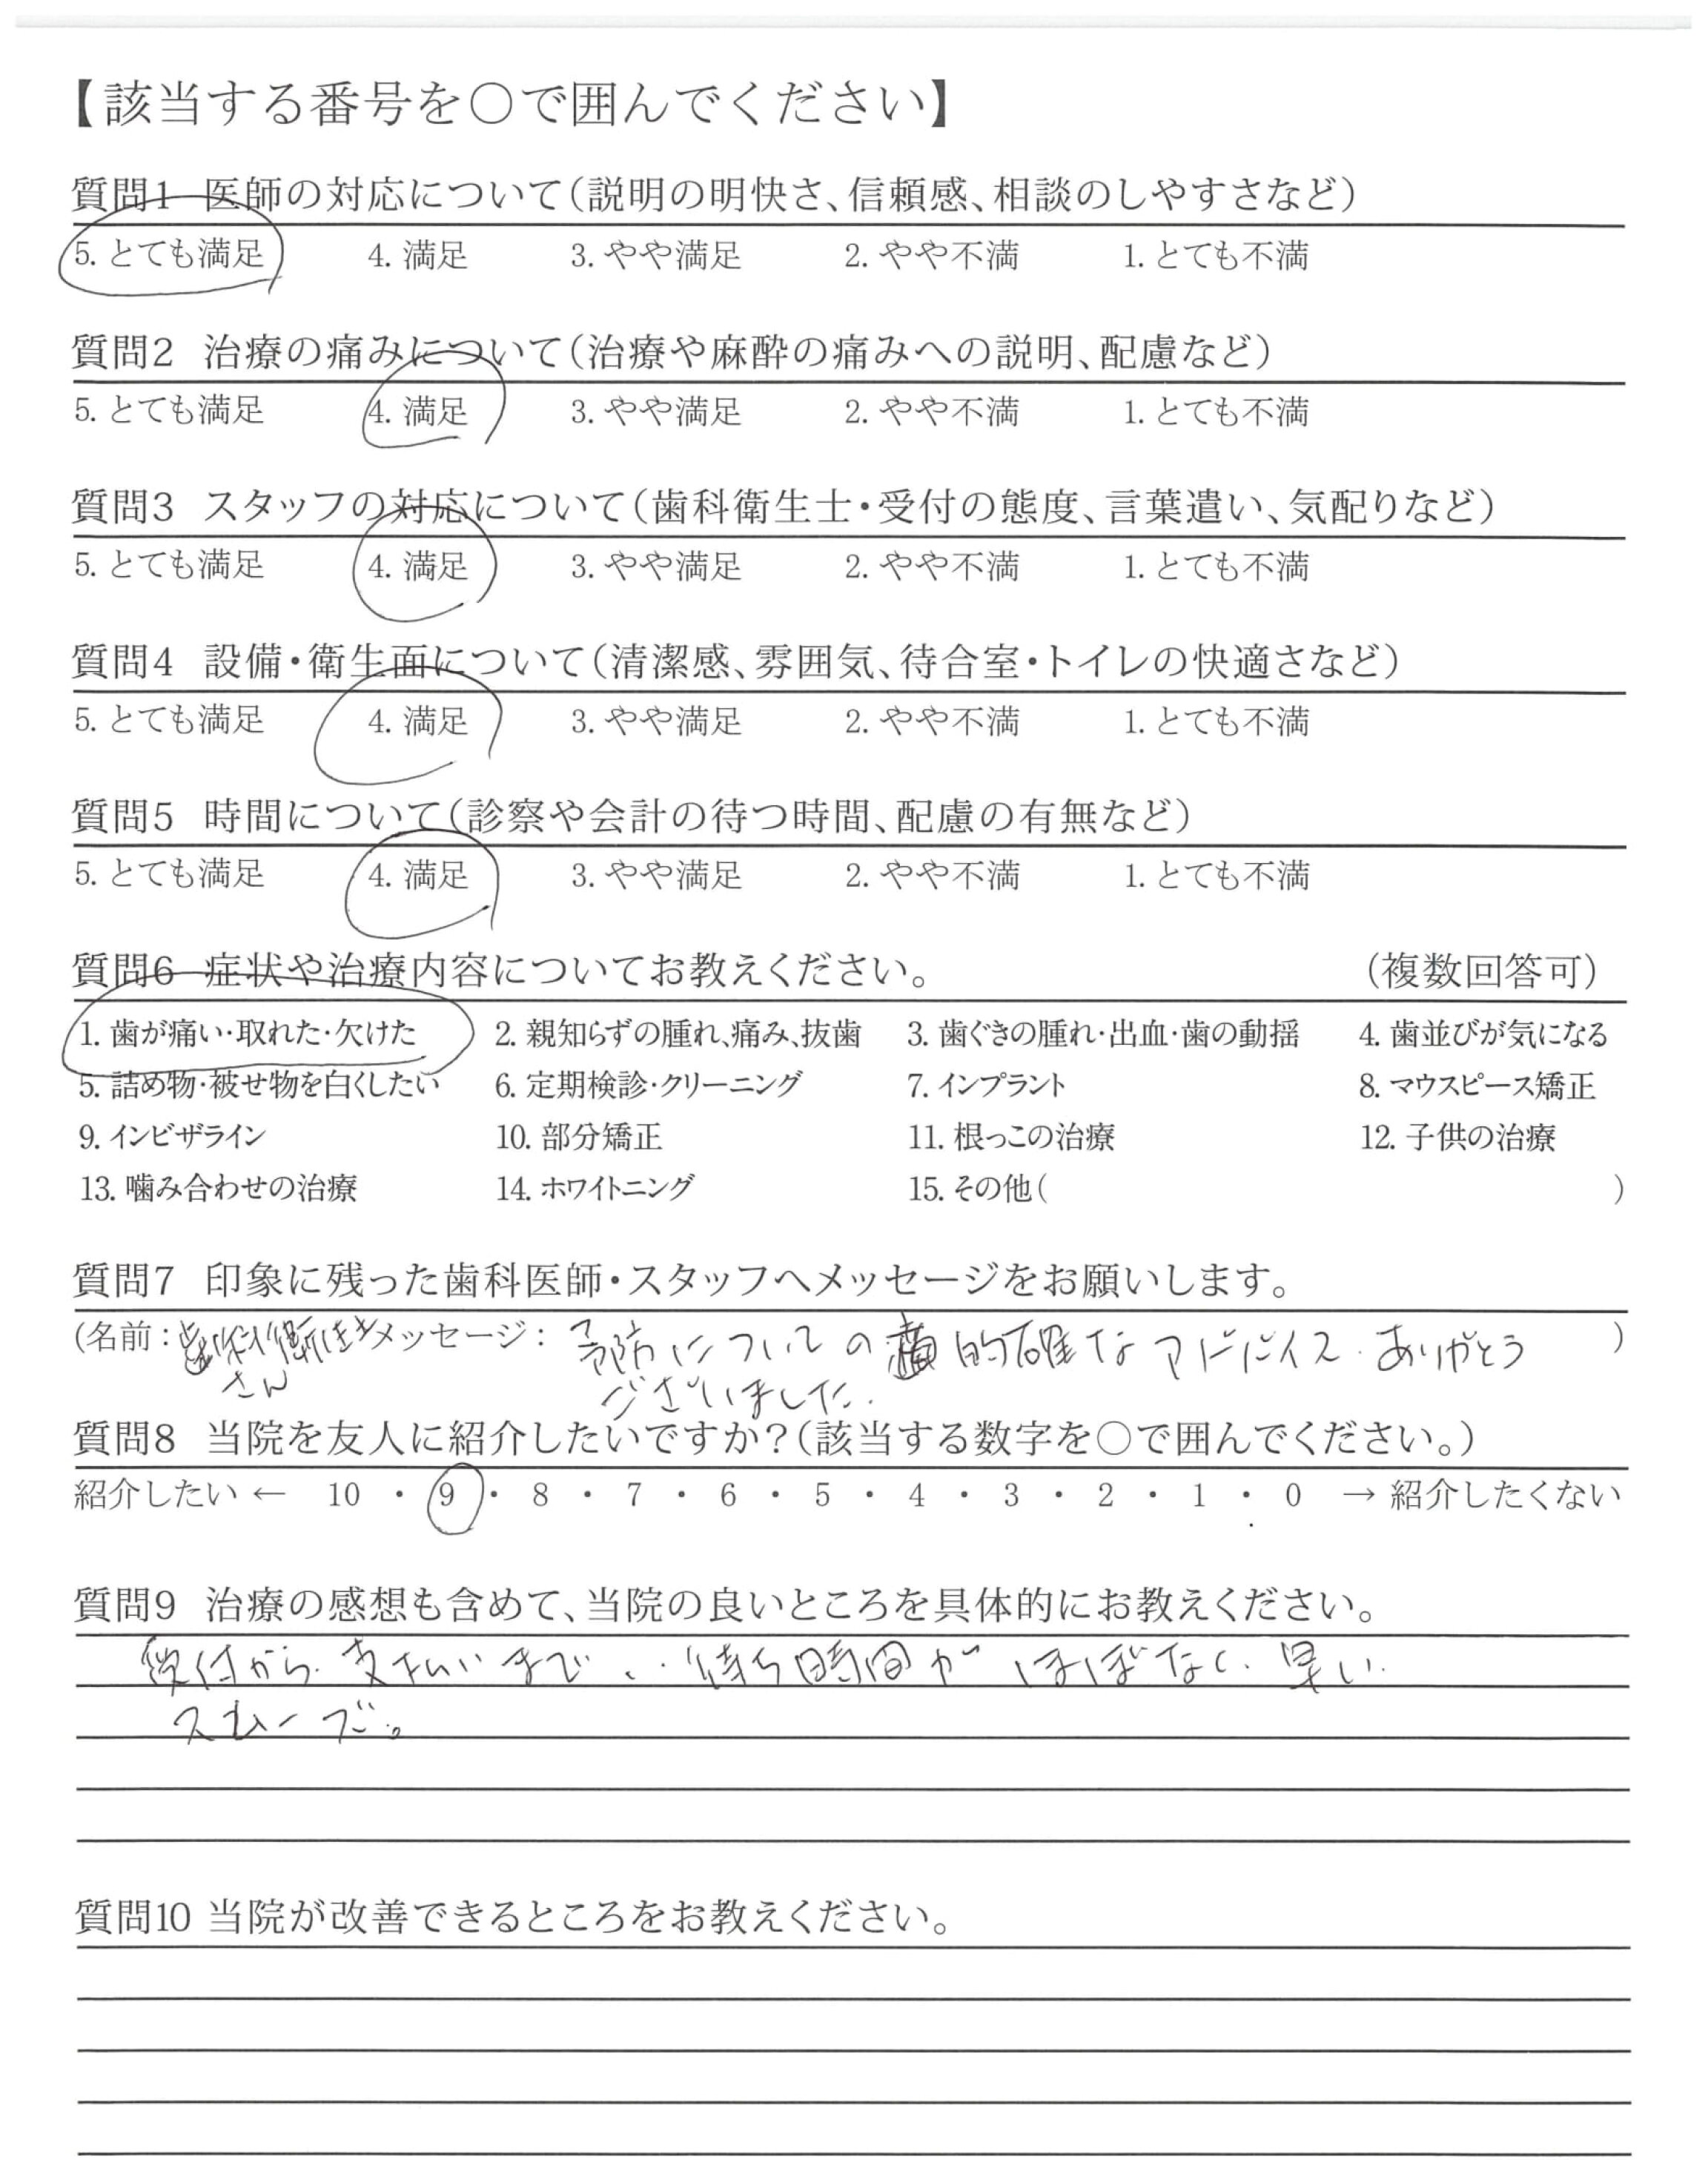 【該当する番号を○で囲んでください】
質問1 医師の対応について(説明の明快さ、信頼感、相談のしやすさなど)
5. とても満足 4. 満足 3. やや満足 2. やや不満 1. とても不満
質問2 治療の痛みについて(治療や麻酔の痛みへの説明、配慮など)
5. とても満足 4. 満足 3. やや満足 2. やや不満 1. とても不満
質問3 スタッフの対応について(歯科衛生士・受付の態度、言葉遣い、気配りなど)
5. とても満足 4. 満足 3. やや満足 2. やや不満 1. とても不満
質問4 設備・衛生面について(清潔感、雰囲気、待合室・トイレの快適さなど)
5. とても満足 4. 満足 3. やや満足 2. やや不満 1. とても不満
質問5 時間について(診察や会計の待つ時間、配慮の有無など)
5. とても満足 4. 満足 3. やや満足 2. やや不満 1. とても不満
質問6 症状や治療内容についてお教えください。 (複数回答可)
1. 歯が痛い・取れた・欠けた 2. 親知らずの腫れ、痛み、抜歯 3. 歯ぐきの腫れ・出血・歯の動揺 4. 歯並びが気になる
5. 詰め物・被せ物を白くしたい 6. 定期検診・クリーニング 7. インプラント 8. マウスピース矯正
9. インビザライン 10. 部分矯正 11. 根っこの治療 12. 子供の治療
13. 噛み合わせの治療 14. ホワイトニング 15. その他( )
質問7 印象に残った歯科医師・スタッフへメッセージをお願いします。
(名前: 歯科衛生士 メッセージ: 予防についての 的確なアドバイス ありがとう )
さん ございました.
質問8 当院を友人に紹介したいですか?(該当する数字を○で囲んでください。)
紹介したい ← 10 ・ 9 ・ 8 ・ 7 ・ 6 ・ 5 ・ 4 ・ 3 ・ 2 ・ 1 ・ 0 → 紹介したくない
質問9 治療の感想も含めて、当院の良いところを具体的にお教えください。
受付から支払いまで、待ち時間がほぼなく、早い.
スムーズ。
質問10 当院が改善できるところをお教えください。